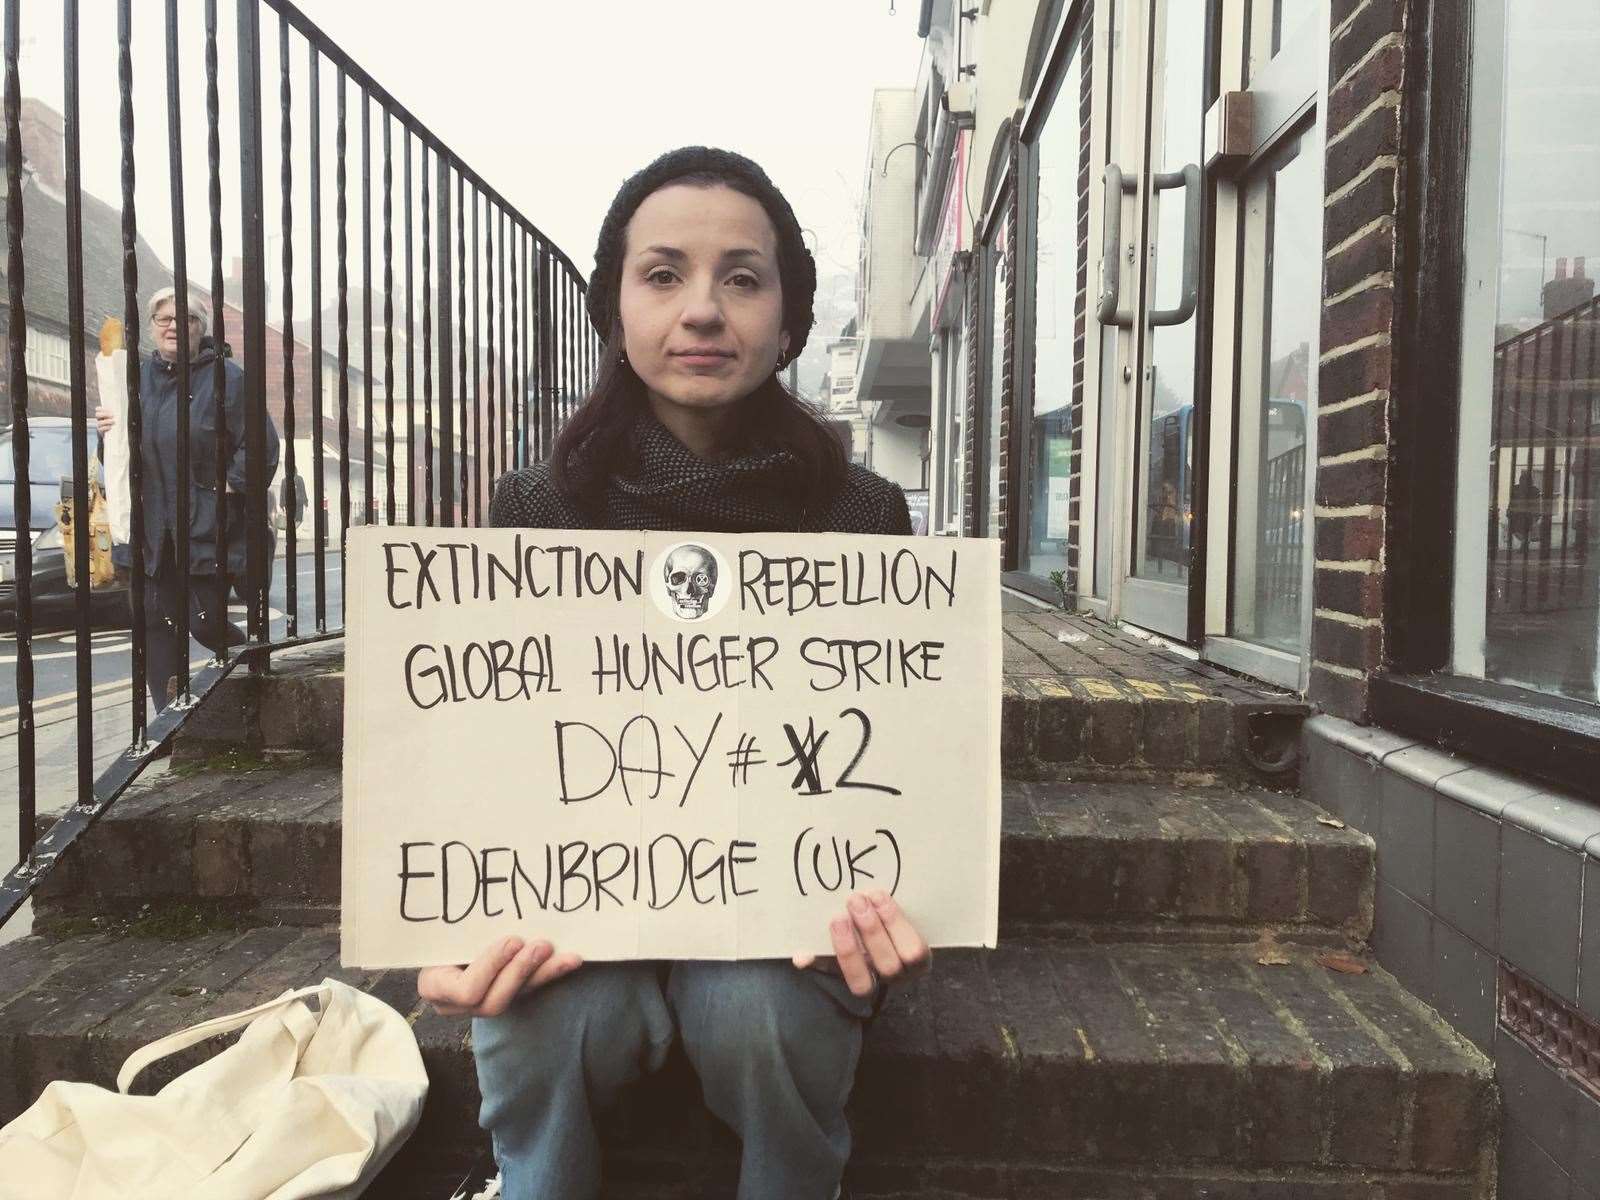 EXTINCTION REBELLION
GLOBAL HUNGER STRIKE
DAY # 2
EDENBRIDGE (UK)